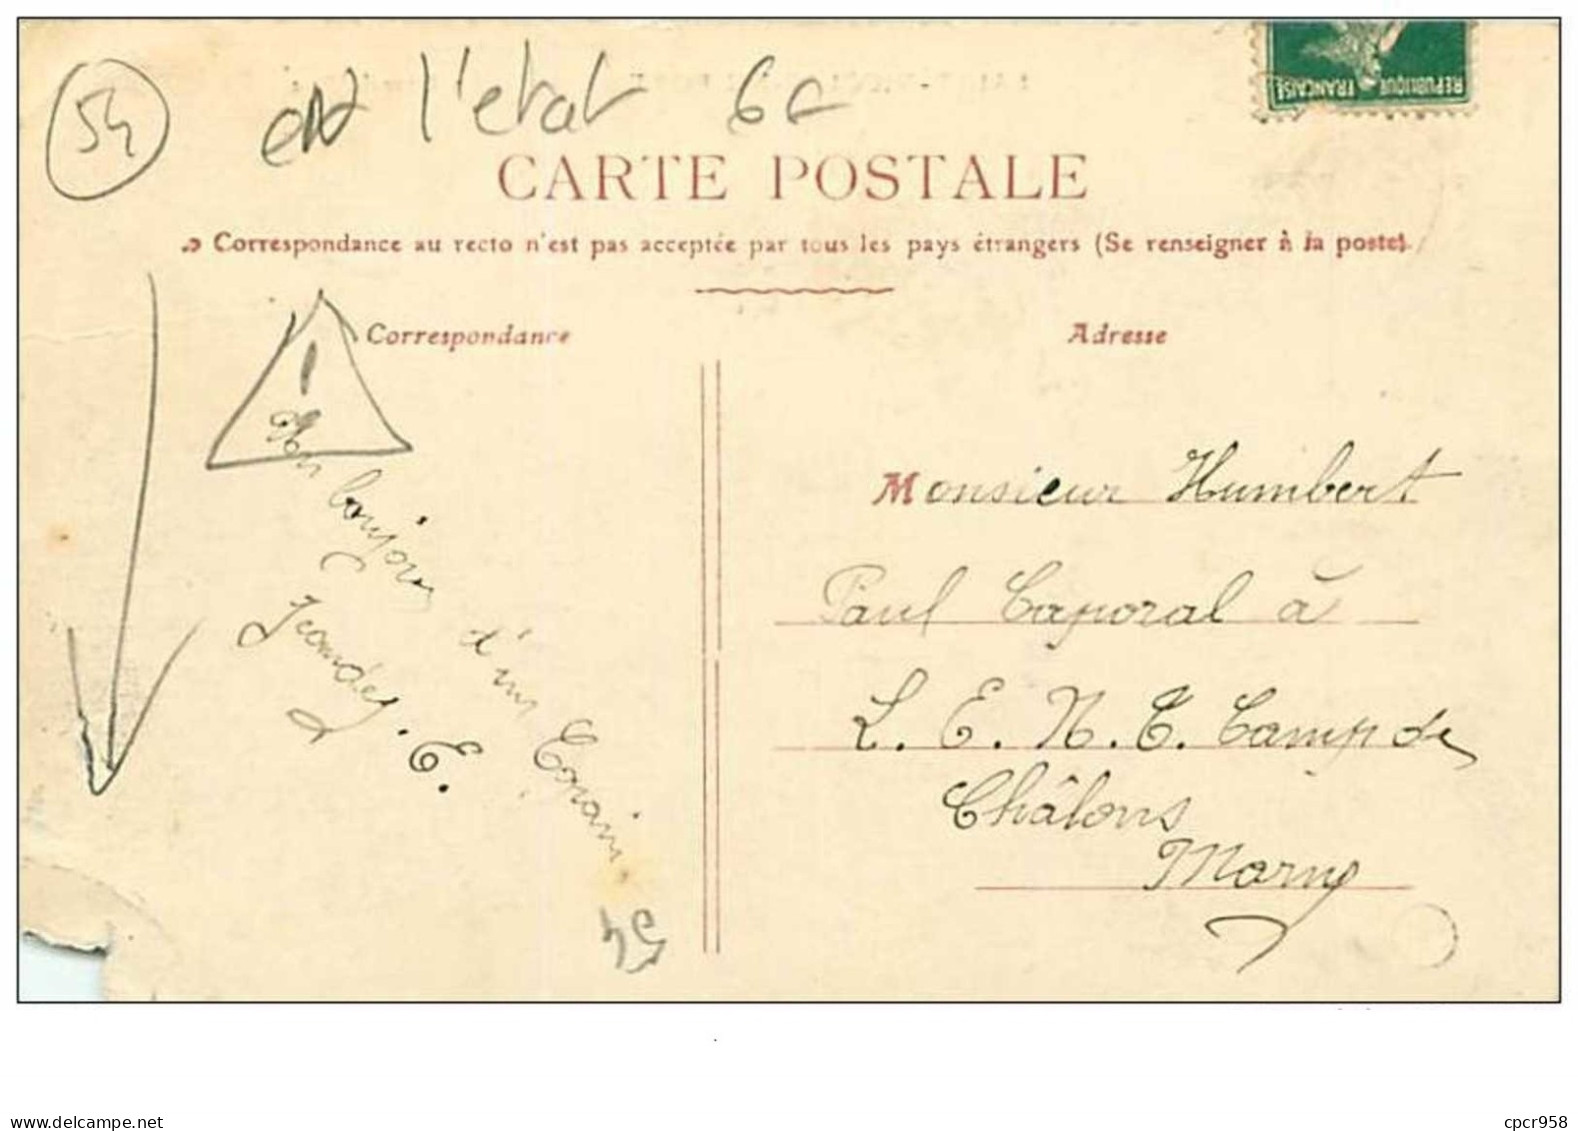 54
en l'etat 6€
REPUBLIQUE FRANÇAISE
CARTE POSTALE
Correspondance au recto n'est pas acceptée par tous les pays étrangers (Se renseigner à la poste).
Correspondance
!
Un bonjour d'un Copain
E.
54
Adresse
Monsieur Humbert
Paul Caporal à
L. E. N. T. Camp de
Châlons
Marne
delcampe.net
cpcr958